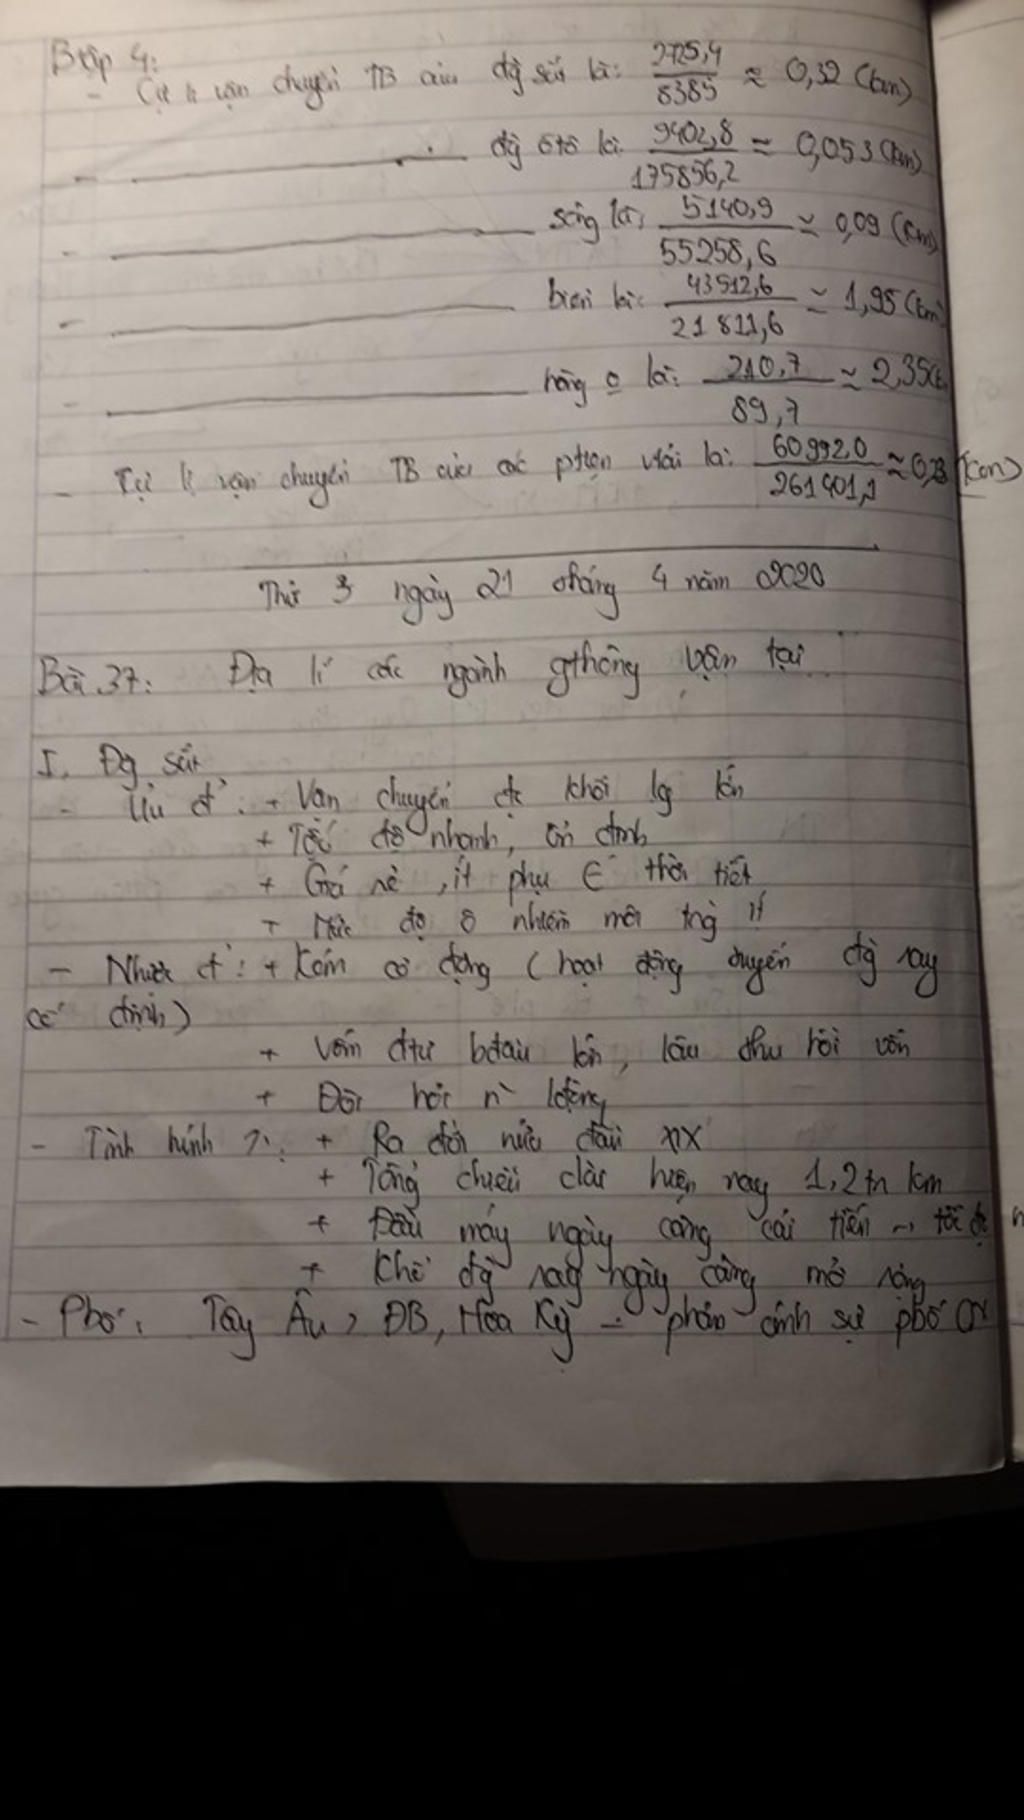 Btập 4:
- Cự li vận chuyển TB của đg sắt là: 2725,4 / 8385 ≈ 0,32 (km)
- đg ôtô là: 9402,8 / 175856,2 ≈ 0,053 (km)
- sông là: 5140,9 / 55258,6 ≈ 0,09 (km)
- biển là: 43512,6 / 21811,6 ≈ 1,95 (km)
- hàng o là: 210,7 / 89,7 ≈ 2,35
- Cự li vận chuyển TB của các ptiện vtải là: 609920 / 261401,1 ≈ 0,23 (km)
Thứ 3 ngày 21 tháng 4 năm 2020
Bài 37: Địa lí các ngành gthông vận tại
I. Đg sắt
- Ưu đ': + Vận chuyển đc khối lg lớn
+ Tốc độ nhanh, ổn định
+ Giá rẻ, ít phụ € thời tiết
+ Mức độ ô nhiễm môi trg ít
- Nhược đ': + Kém cơ động (hoạt động tuyến đg ray
cố định)
+ Vốn đtư bđầu lớn, lâu thu hồi vốn
+ Đòi hỏi n` lđộng
- Tình hình : + Ra đời nửa đầu XIX
+ Tổng chiều dài hiện nay 1,2tr km
+ Đầu máy ngày càng cải tiến → tốc độ
+ Khổ đg ray ngày càng mở rộng
- Pbố: Tây Âu, ĐB, Hoa Kỳ → phản ánh sự pbố CN